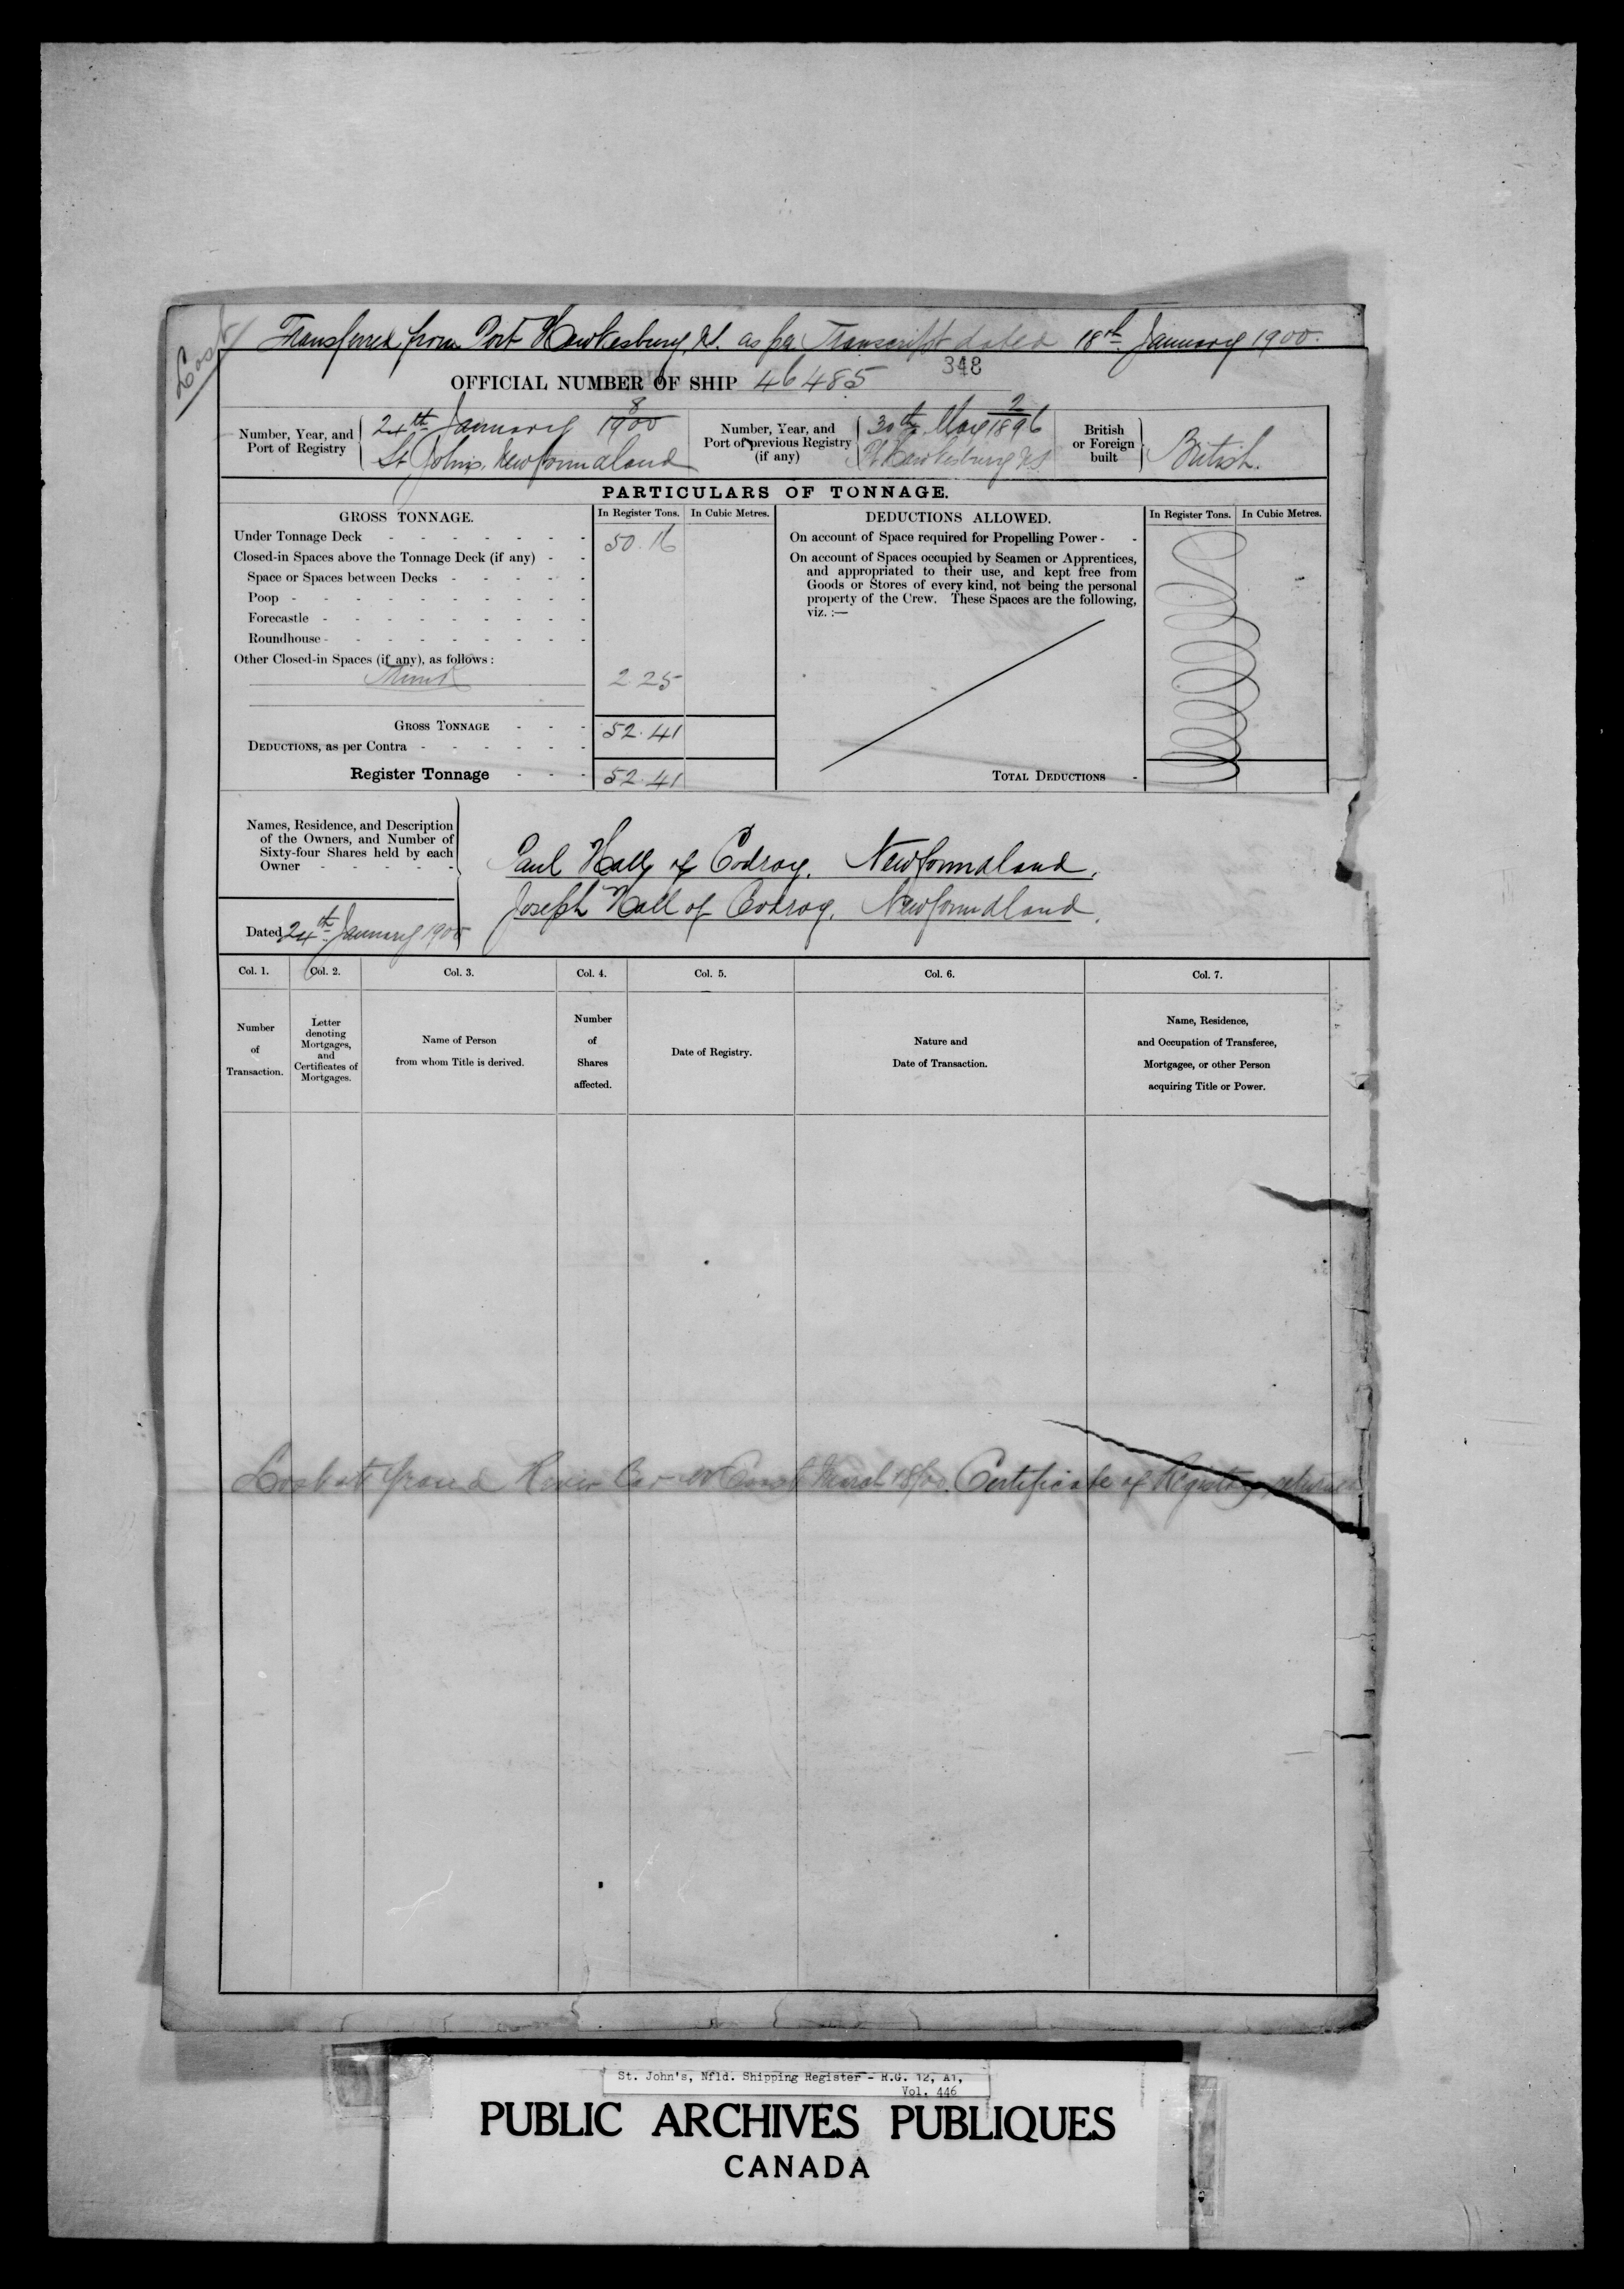 Lost
Transferred from Port Hawkesbury, N.S. as per Transcript dated 18th January 1900.
348
OFFICIAL NUMBER OF SHIP 46485
Number, Year, and Port of Registry
8
24th January 1900
St. Johns, Newfoundland
Number, Year, and Port of previous Registry (if any)
2
30th May 1896
Pt Hawkesbury NS
British or Foreign built
British.
PARTICULARS OF TONNAGE.
GROSS TONNAGE. In Register Tons. In Cubic Metres.
Under Tonnage Deck - - - - - - - 50.16
Closed-in Spaces above the Tonnage Deck (if any) - -
Space or Spaces between Decks - - - - -
Poop - - - - - - - - - -
Forecastle - - - - - - - - -
Roundhouse - - - - - - - - -
Other Closed-in Spaces (if any), as follows:
Trunk 2.25
GROSS TONNAGE - - - 52.41
DEDUCTIONS, as per Contra - - - - - -
Register Tonnage - - - 52.41
DEDUCTIONS ALLOWED. In Register Tons. In Cubic Metres.
On account of Space required for Propelling Power - -
On account of Spaces occupied by Seamen or Apprentices,
and appropriated to their use, and kept free from
Goods or Stores of every kind, not being the personal
property of the Crew. These Spaces are the following,
viz. :—
TOTAL DEDUCTIONS -
Names, Residence, and Description
of the Owners, and Number of
Sixty-four Shares held by each
Owner - - - - -
Paul Hall of Codroy. Newfoundland.
Joseph Hall of Codroy. Newfoundland.
Dated 24th January 1900
Col. 1. Col. 2. Col. 3. Col. 4. Col. 5. Col. 6. Col. 7.
Number of Transaction.
Letter denoting Mortgages, and Certificates of Mortgages.
Name of Person from whom Title is derived.
Number of Shares affected.
Date of Registry.
Nature and Date of Transaction.
Name, Residence, and Occupation of Transferee, Mortgagee, or other Person acquiring Title or Power.
Lost at Grand River Bar W Coast March 18/00. Certificate of Registry
St. John's, Nfld. Shipping Register - R.G. 12, A1,
Vol. 446
PUBLIC ARCHIVES PUBLIQUES
CANADA